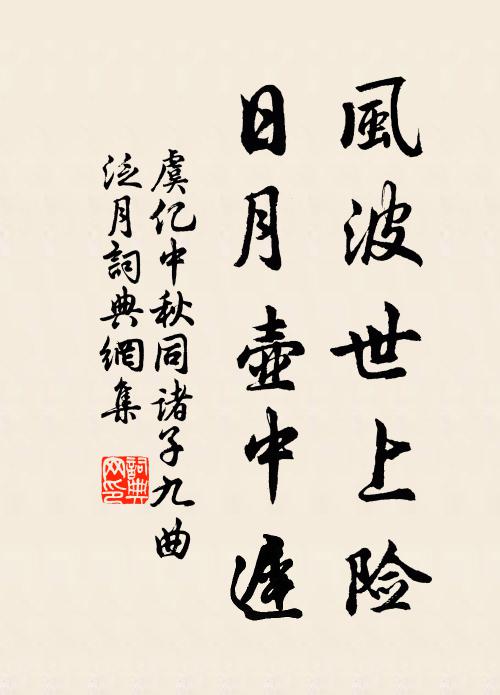 風波世上险
日月壺中遲
虞仡中秋同诸子九曲
泛月詞典網集
詞典网印